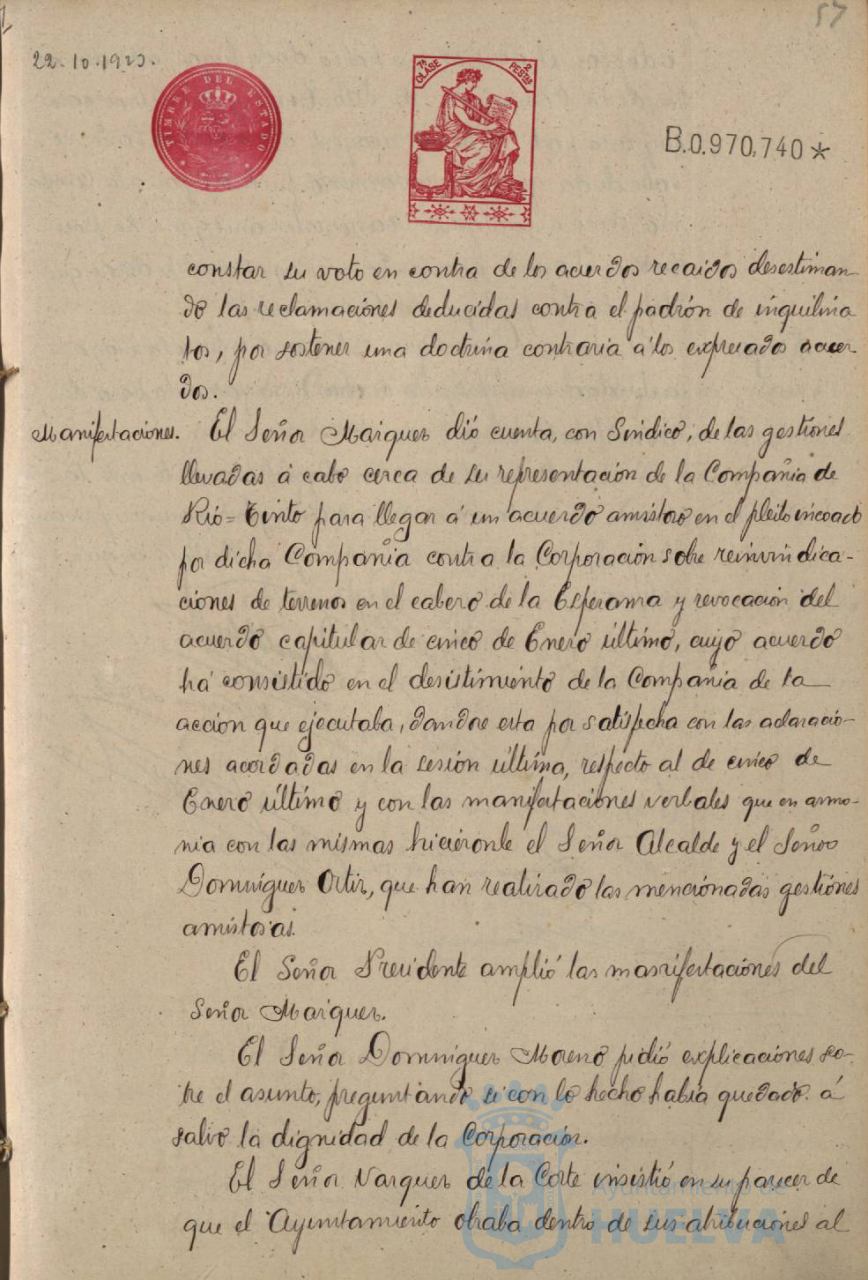 57
22.10.1923.
TIMBRE DEL ESTADO
7ª CLASE
2 PESTAS
B.0.970.740*
constar su voto en contra de los acuerdos recaidos desestiman-
do las reclamaciones deducidas contra el padrón de inquilina
tos, por sostener una doctrina contraria á los expresados acuer-
dos.
Manifestaciones. El Señor Maiquez dió cuenta, con Sindico, de las gestiones
llevadas á cabo cerca de su representación de la Compañia de
Rio=Tinto para llegar á un acuerdo amistoso en el pleito incoado
por dicha Compañia contra la Corporación sobre reinvindica-
ciones de terrenos en el cabezo de la Esperanza y revocación del
acuerdo capitular de cinco de Enero último, cuyo acuerdo
há consistido en el desistimiento de la Compañia de la
acción que ejecutaba, dandose esta por satisfecha con las aclaracio-
nes acordadas en la sesión última, respecto al de cinco de
Enero último y con las manifestaciones verbales que en armo-
nia con las mismas hicieronle el Señor Alcalde y el Señor
Dominguez Ortiz, que han realizado las mencionadas gestiones
amistosas.
El Señor Presidente amplió las manifestaciones del
Señor Maiquez.
El Señor Dominguez Moreno pidió explicaciones so-
bre el asunto, preguntando si con lo hecho habia quedado á
salvo la dignidad de la Corporación.
El Señor Vazquez de la Corte insistió en su parecer de
que el Ayuntamiento obraba dentro de sus atribuciones al
Ayuntamiento de
HUELVA